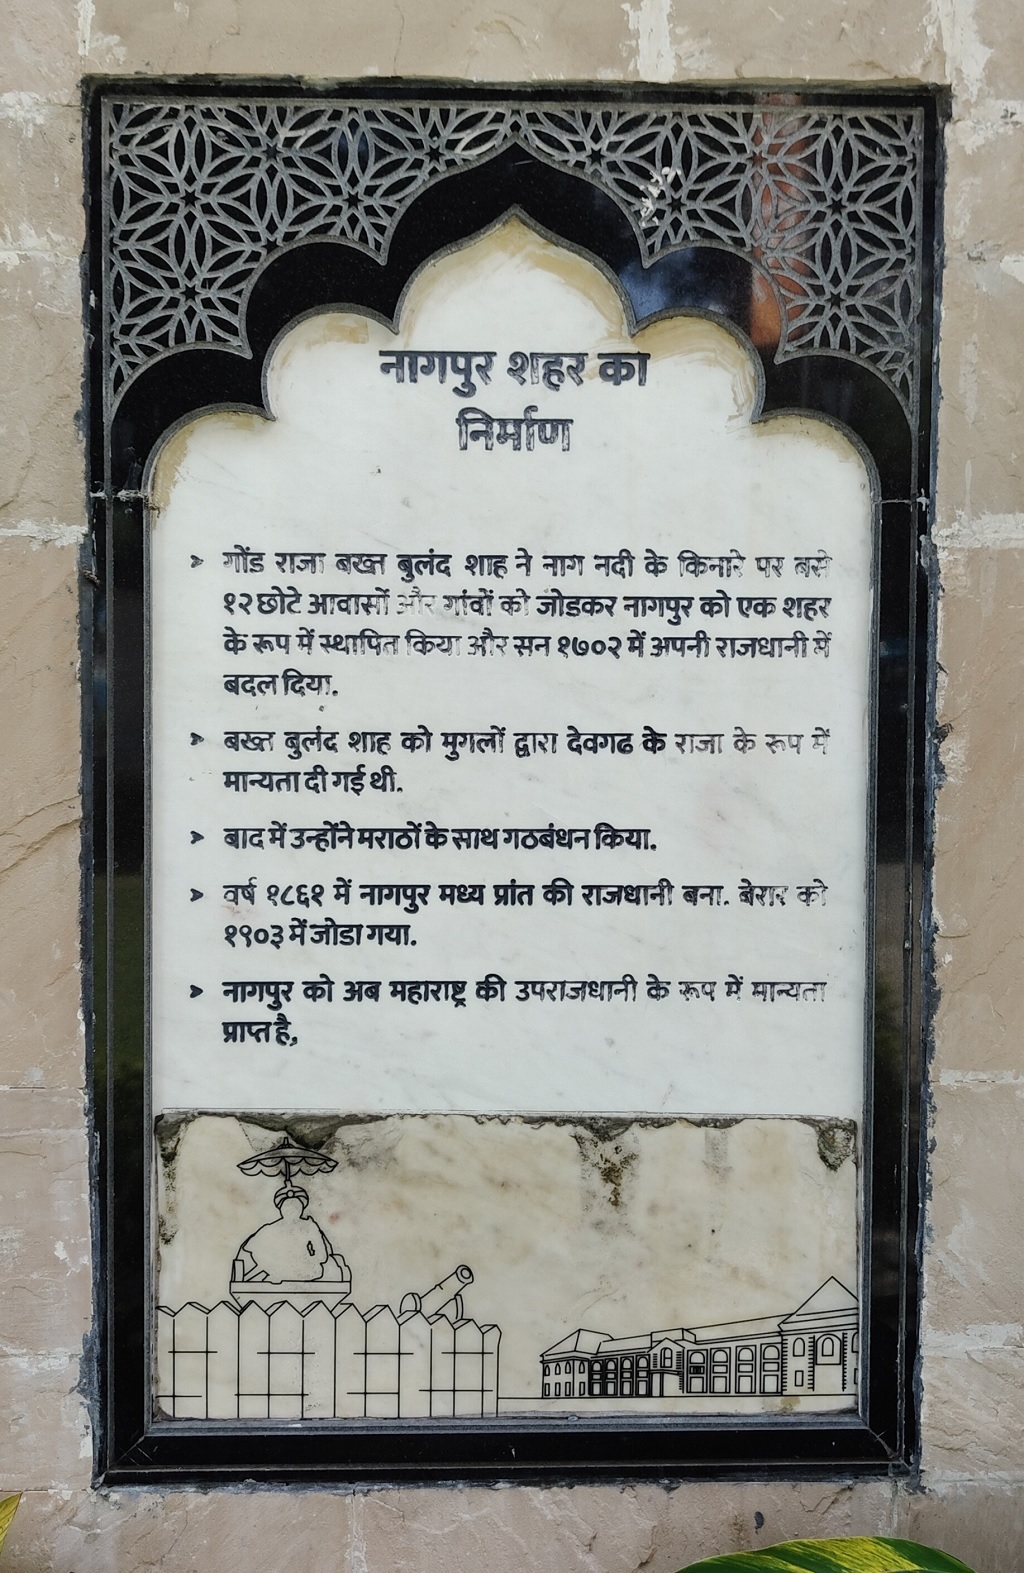 नागपुर शहर का
निर्माण
➢ गोंड राजा बख्त बुलंद शाह ने नाग नदी के किनारे पर बसे
१२ छोटे आवासों और गांवों को जोडकर नागपुर को एक शहर
के रूप में स्थापित किया और सन १७०२ में अपनी राजधानी में
बदल दिया.
➢ बख्त बुलंद शाह को मुगलों द्वारा देवगढ के राजा के रूप में
मान्यता दी गई थी.
➢ बाद में उन्होंने मराठों के साथ गठबंधन किया.
➢ वर्ष १८६१ में नागपुर मध्य प्रांत की राजधानी बना. बेरार को
१९०३ में जोडा गया.
➢ नागपुर को अब महाराष्ट्र की उपराजधानी के रूप में मान्यता
प्राप्त है,